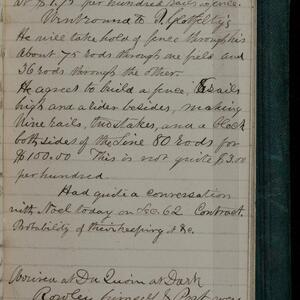 at $1.75 per hundred rails in fence.
Went round to A. Glotfelty's
He will take hold of fence through his
about 75 rods through one field and
36 rods through the other.
He agrees to build a fence, 8 rails
high and a rider besides, making
nine rails, two stakes, and a block
both sides of the line 80 rods for
$100.00 This is not quite $3.00
per hundred.
Had quite a conversation
with Noel today on Sec. 62 Contract.
Probability of their keeping it &c.
Arrived at Du Quoin at Dark
Rowley himself &